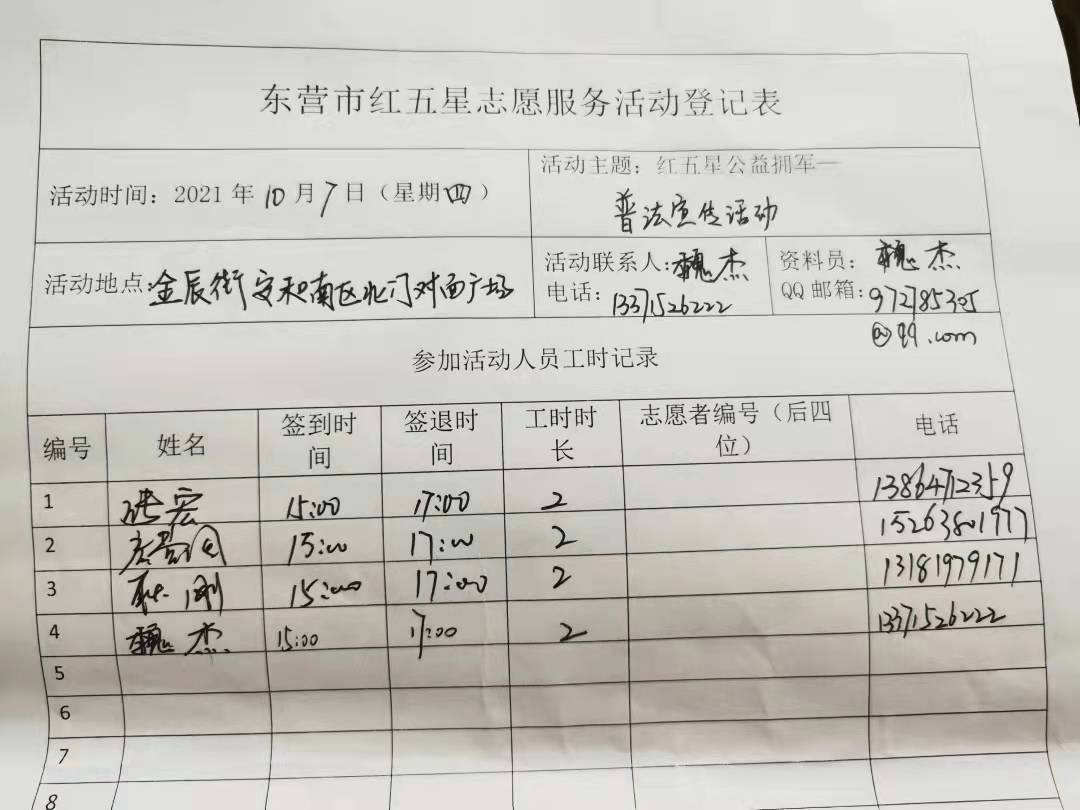 东营市红五星志愿服务活动登记表
活动时间：2021年10月7日（星期四）
活动主题：红五星公益拥军—
普法宣传活动
活动地点：金辰街安和南区北门对面广场
活动联系人：魏杰
电话：13371526222
资料员：魏杰
QQ邮箱：972785305
@qq.com
参加活动人员工时记录
编号 姓名 签到时间 签退时间 工时时长 志愿者编号（后四位） 电话
1 张宏 15:00 17:00 2 13864712359
2 15:00 17:00 2 15263801977
3 15:00 17:00 2 13181979171
4 魏杰 15:00 17:00 2 13371526222
5
6
7
8